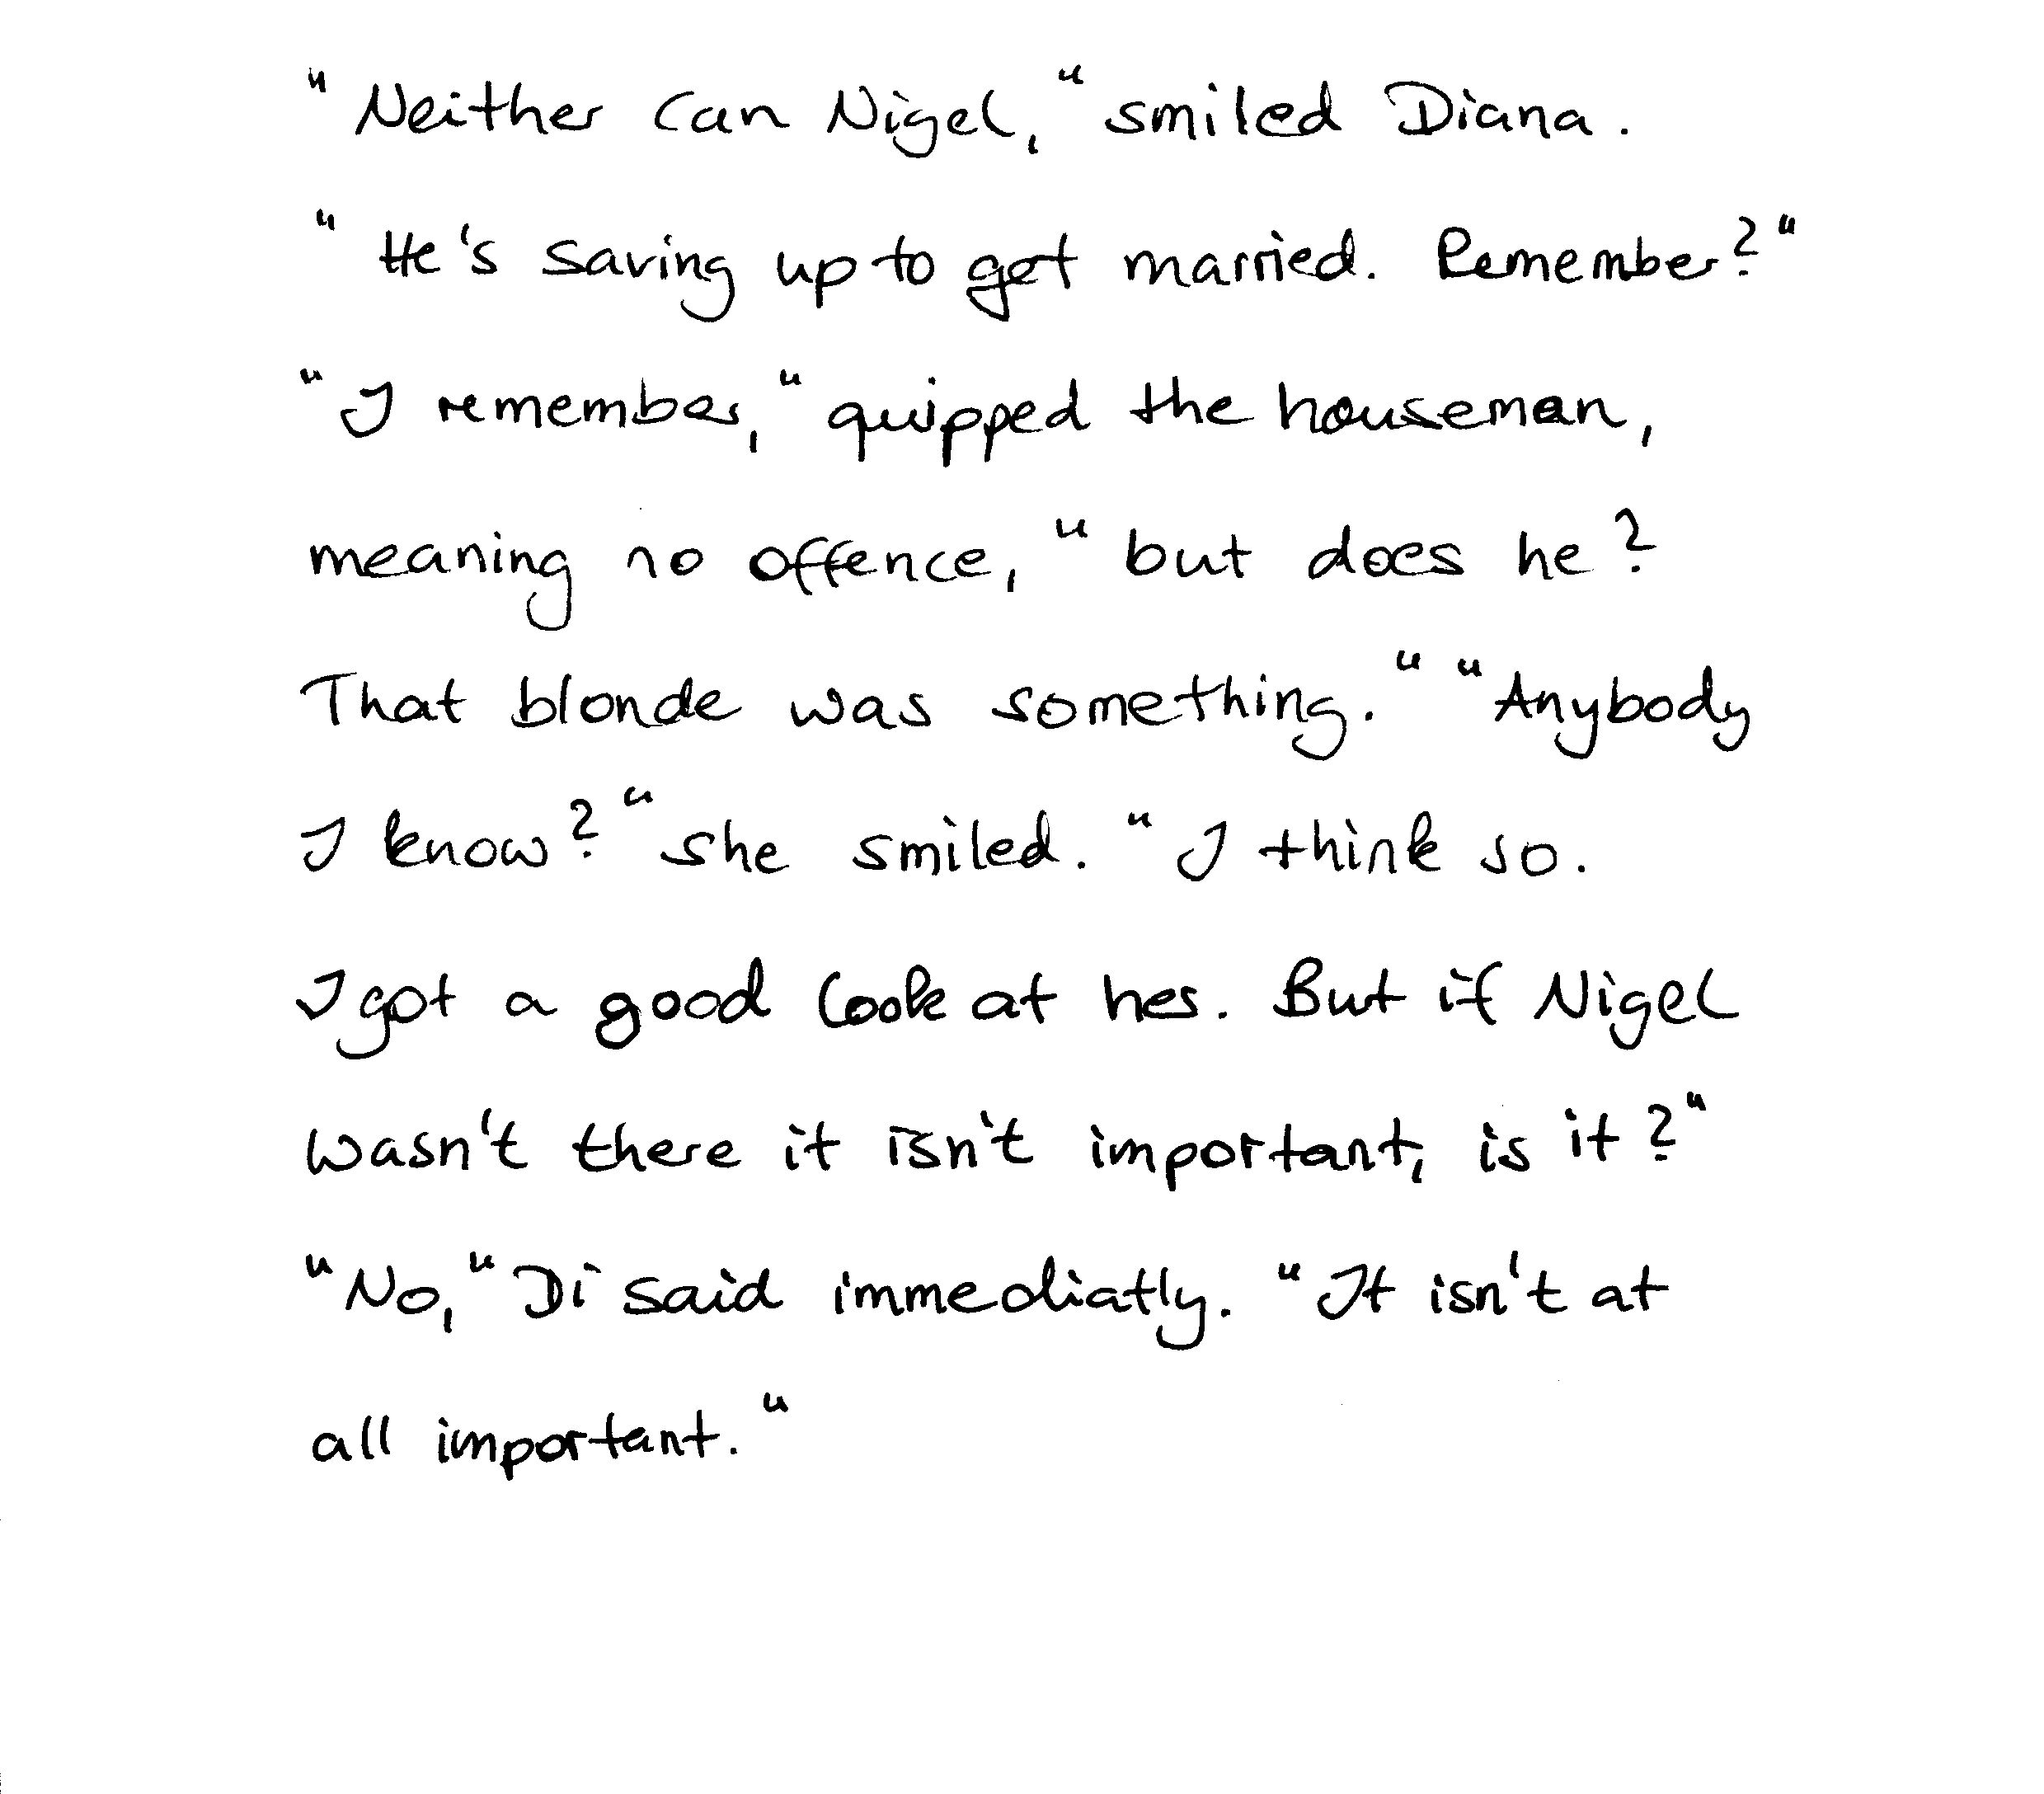 "Neither can Nigel," smiled Diana.
"He's saving up to get married. Remember?"
"I remember," quipped the houseman,
meaning no offence, "but does he?
That blonde was something." "Anybody
I know?" she smiled. "I think so.
I got a good look at her. But if Nigel
wasn't there it isn't important, is it?"
"No," Di said immediatly. "It isn't at
all important."